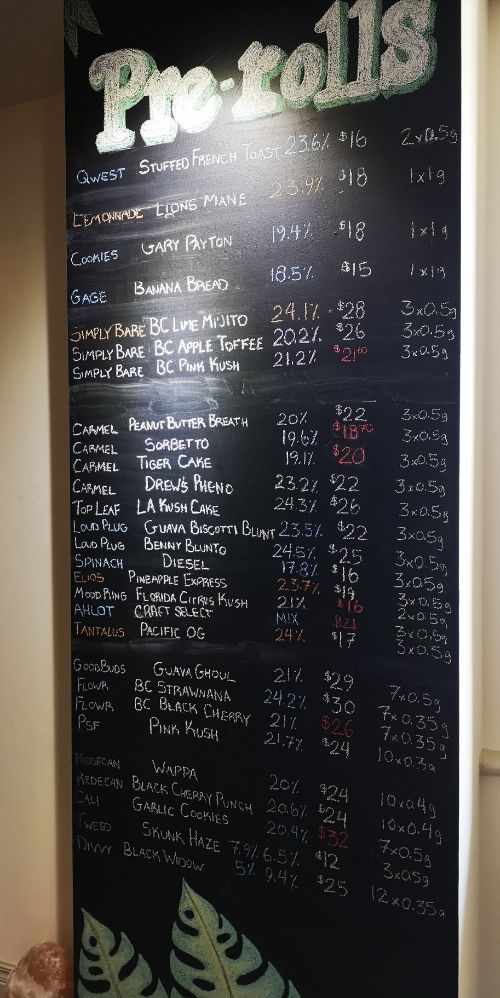 Pre-rolls
QWEST STUFFED FRENCH TOAST 23.6% $16 2x0.5g
LEMONNADE LIONS MANE 23.9% $18 1x1g
COOKIES GARY PAYTON 19.4% $18 1x1g
GAGE BANANA BREAD 18.5% $15 1x1g
SIMPLY BARE BC LIME MOJITO 24.1% $28 3x0.5g
SIMPLY BARE BC APPLE TOFFEE 20.2% $26 3x0.5g
SIMPLY BARE BC PINK KUSH 21.2% $21⁰⁰ 3x0.5g
CARMEL PEANUT BUTTER BREATH 20% $22 3x0.5g
CARMEL SORBETTO 19.6% $18⁷⁰ 3x0.5g
CARMEL TIGER CAKE 19.1% $20 3x0.5g
CARMEL DREW'S PHENO 23.2% $22 3x0.5g
TOP LEAF LA KUSH CAKE 24.3% $26 3x0.5g
LOUD PLUG GUAVA BISCOTTI BLUNT 23.5% $22 3x0.5g
LOUD PLUG BENNY BLUNTO 24.5% $25 3x0.5g
SPINACH DIESEL 17.8% $16 3x0.5g
ELIOS PINEAPPLE EXPRESS 23.7% $19 3x0.5g
MOOD RING FLORIDA CITRUS KUSH 21% $16 2x0.5g
AHLOT CRAFT SELECT MIX $21 3x0.5g
TANTALUS PACIFIC OG 24% $17 3x0.5g
GOODBUDS GUAVA GHOUL 21% $29 7x0.5g
FLOWR BC STRAWNANA 24.2% $30 7x0.35g
FLOWR BC BLACK CHERRY 21% $26 7x0.35g
PSF PINK KUSH 21.7% $24 10x0.3g
REDECAN WAPPA 20% $24 10x0.4g
REDECAN BLACK CHERRY PUNCH 20.6% $24 10x0.4g
SALI GARLIC COOKIES 20.4% $32 7x0.5g
TWEED SKUNK HAZE 7.9% 6.5% $12 3x0.5g
DIVVY BLACK WIDOW 5% 9.4% $25 12x0.35g